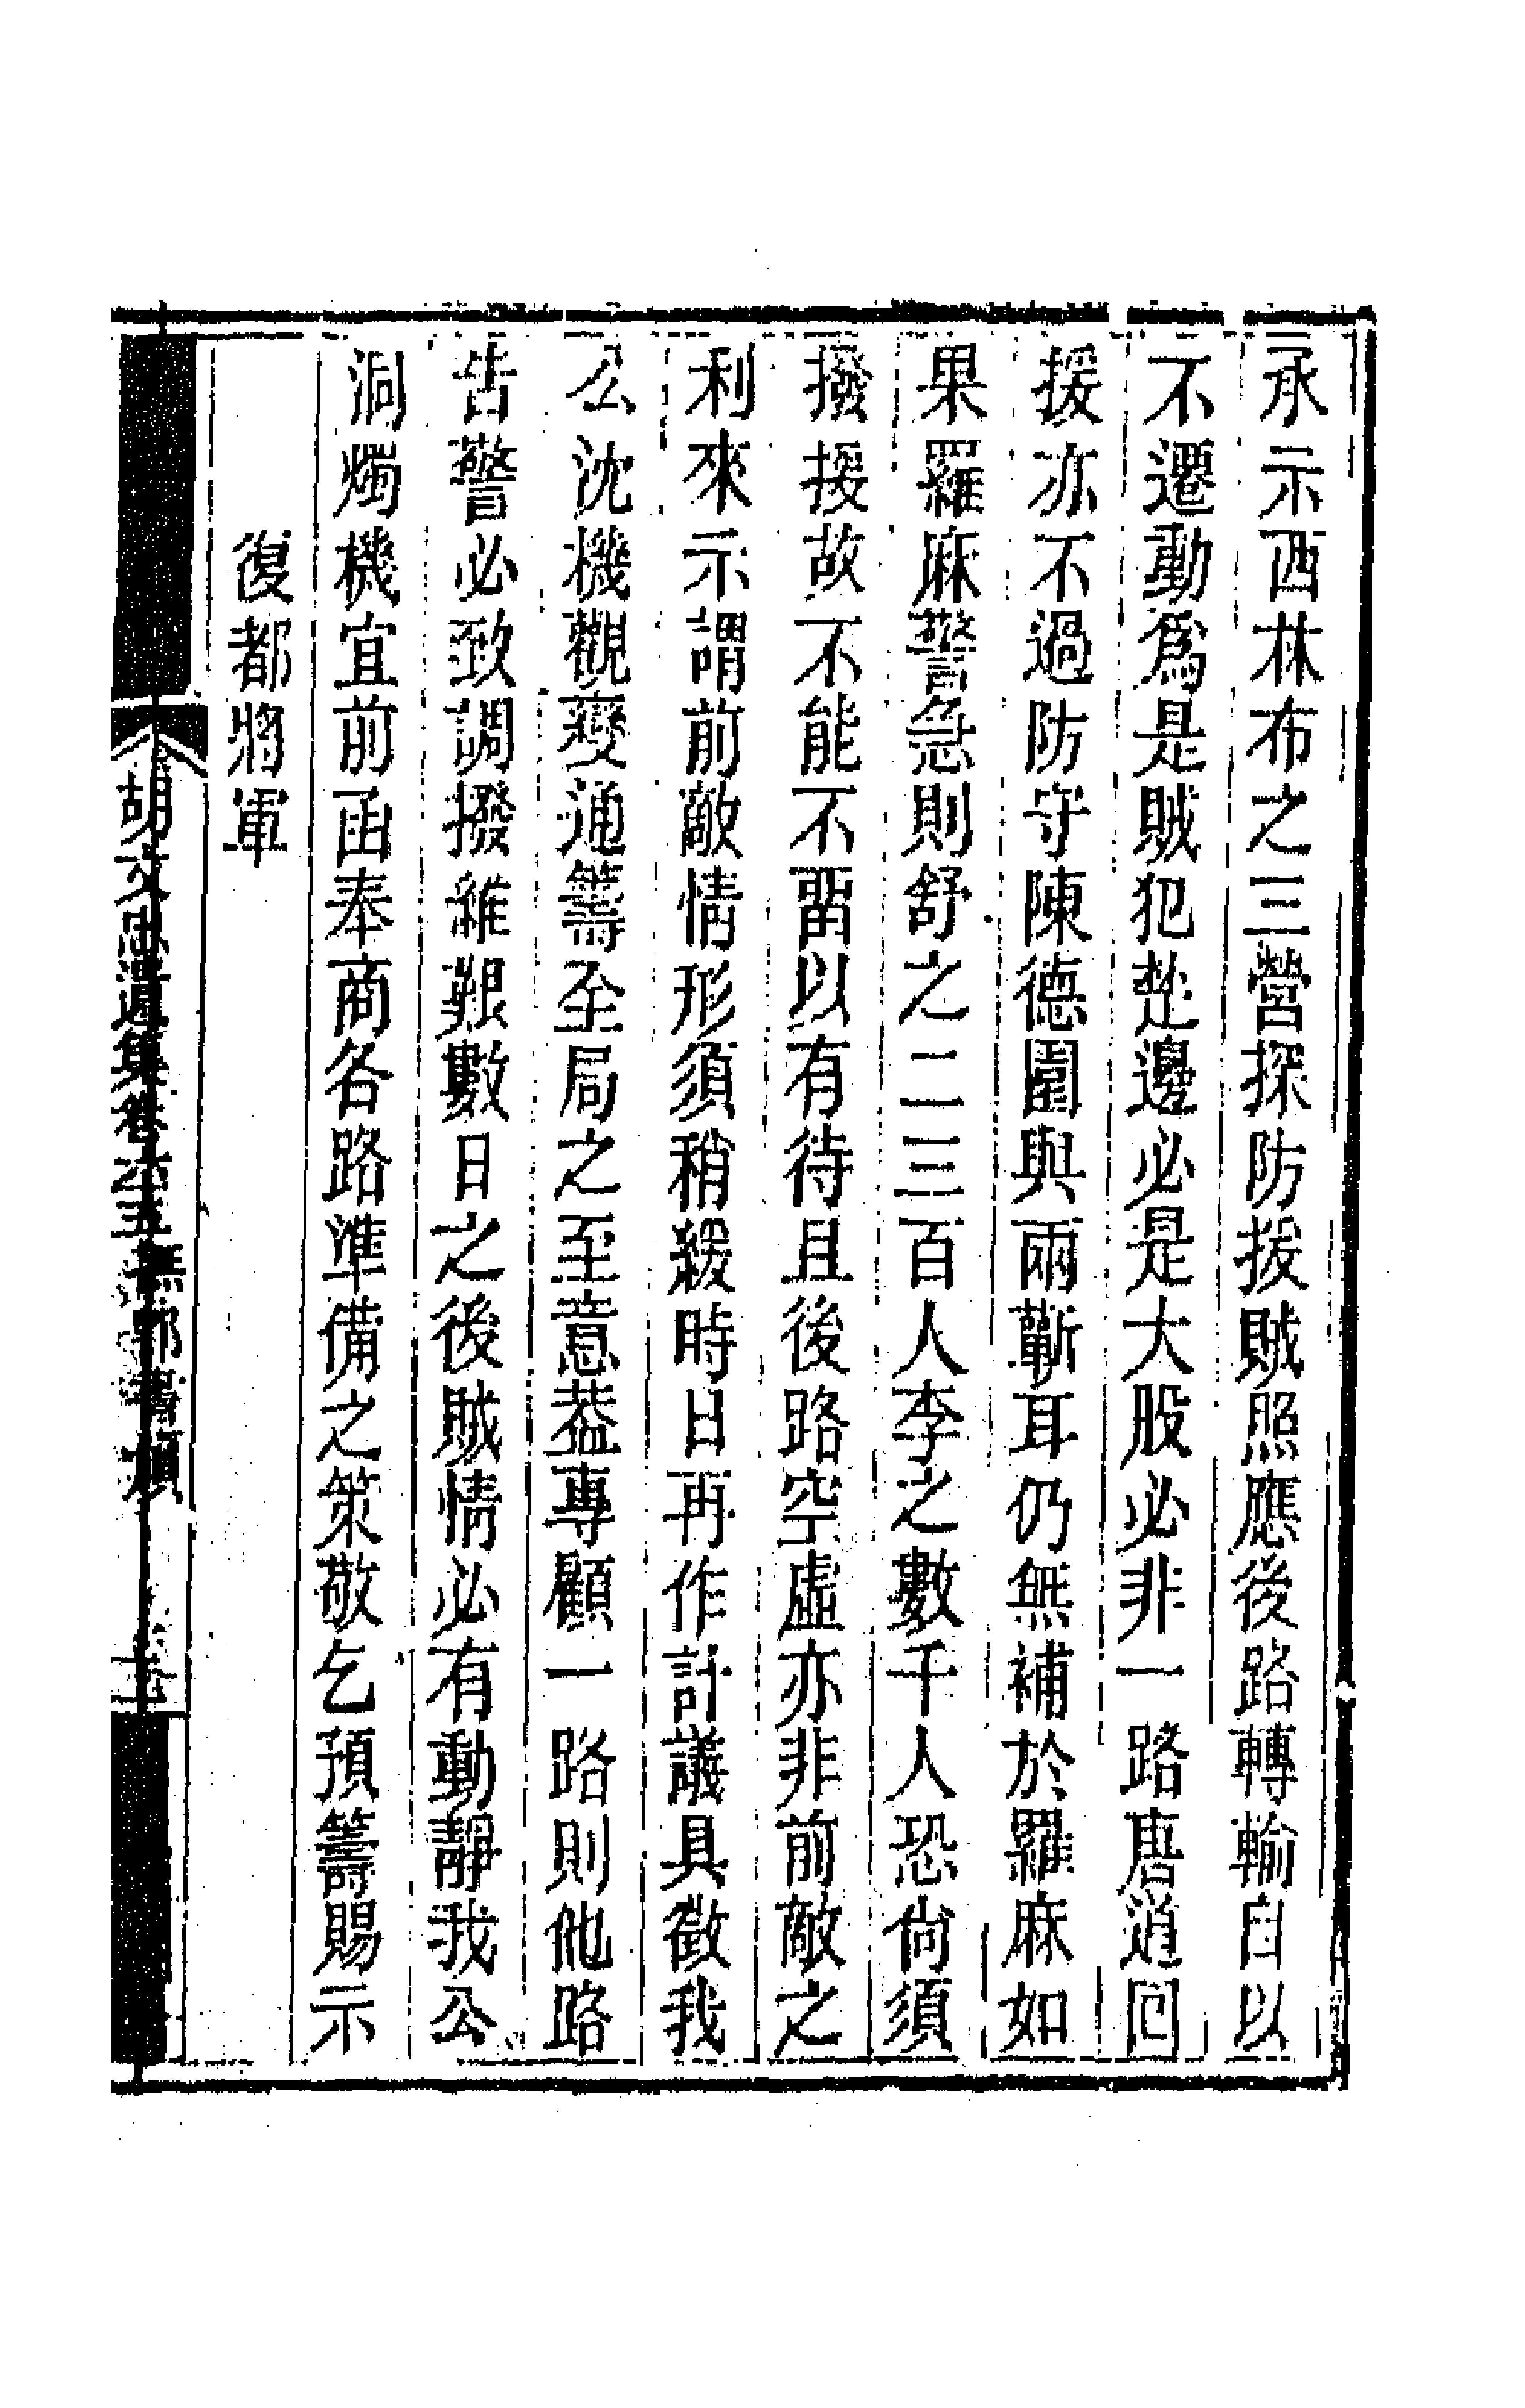 承示西林布之三營探防援賊照應後路轉輸自以
不遷動爲是賊犯楚邊必是大股必非一路唐道回
援亦不過防守陳德園與兩蘄耳仍無補於羅麻如
果羅麻警急則舒之二三百人李之數千人恐尙須
撥援故不能不畱以有待且後路空虛亦非前敵之
利來示謂前敵情形須稍緩時日再作計議具徵我
公沈機觀變通籌全局之至意葢專顧一路則他路
告警必致調撥維艱數日之後賊情必有動靜我公
洞燭機宜前函奉商各路準備之策敬乞預籌賜示
復都將軍
胡文忠遺集卷六五撫鄂書牘